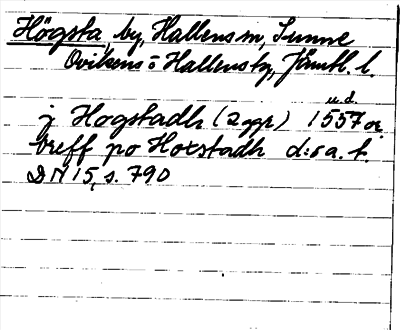 Högsta, by, Hallens sn, Sunne
Ovikens o Hallens tg, Jämtl. l.
u.d.
j Hogstadh (2 ggr) 1557 or.
breff po Hoxstadh d:o a. t.
DN 15, s. 790